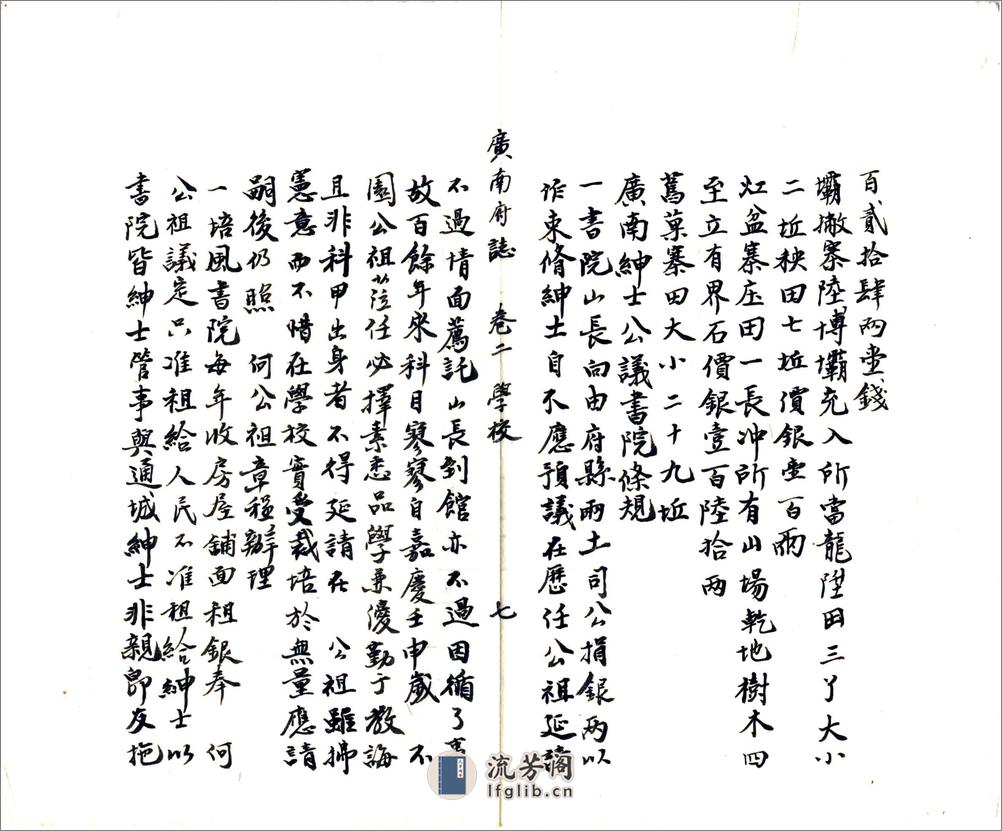 百貳拾肆兩壹錢
壩撇寨陸博壩充入所當龍陞田三丫大小
二坵秧田七坵價銀壹百兩
灴盆寨庄田一長冲所有山場乾地樹木四
至立有界石價銀壹百陸拾兩
蔿菓寨田大小二十九坵
廣南紳士公議書院條規
一書院山長向由府縣兩土司公捐銀兩以
作束脩紳士自不應預議在歷任公祖延請
廣南府誌 卷二 學校 七
不過情面薦託山長到館亦不過因循了事
故百餘年來科目寥寥自嘉慶壬申歲 不
園公祖蒞任必擇素悉品學兼優勤于教誨
且非科甲出身者不得延請在 公祖雖掃
憲意而不惜在學校實受栽培於無量應請
嗣後仍照 何公祖章程辦理
一培風書院每年收房屋舖面租銀奉 何
公祖議定只准租給人民不准租給紳士以
書院皆紳士管事與通城紳士非親即友拖
流芳阁
lfglib.cn